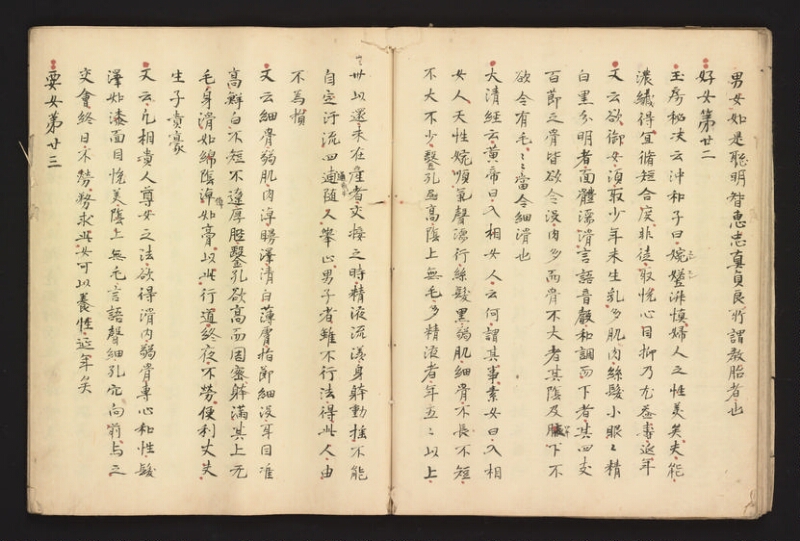 男女如是聡明智恵忠真貞良所謂教胎者也
好女第廿二
玉房秘决云沖和子曰婉㜲淑慎婦人之性美矣夫能
濃纎得宜脩短合度非徒取悦心目抑乃尤益壽延年
又云欲御女須取少年未生乳多肌肉絲髮小眼〻精
白黒分明者面體濡滑言語音聲和調而下者其四支
百節之骨皆欲令没肉多而骨不大者其陰及腋下不
欲令有毛〻當令細滑也
大清経云黄帝曰入相女人云何謂其事素女曰入相
女人天性婉順氣聲濡行絲髮黒弱肌細骨不長不短
不大不少鑿孔居高陰上無毛多精液者年五〻以上
卅以還未在産者交接之時精液流漾身躰動揺不能
自定汗流四逋随人挙止男子者雖不行法得此人由
不為損
又云細骨弱肌肉淖曼澤清白薄膚指節細没耳目准
高鮮白不短不遼厚䏶鑿孔欲高而周密躰満其上无
毛身滑如綿陰淖如膏以此行道終夜不勞便利丈夫
生子貴豪
又云凡相貴人尊女之法欲得滑肉弱骨専心和性髮
澤如漆面目悦美陰上無毛言語聲細孔穴向前与之
交會終日不勞務求此女可以養性延年矣
惡女第廿三